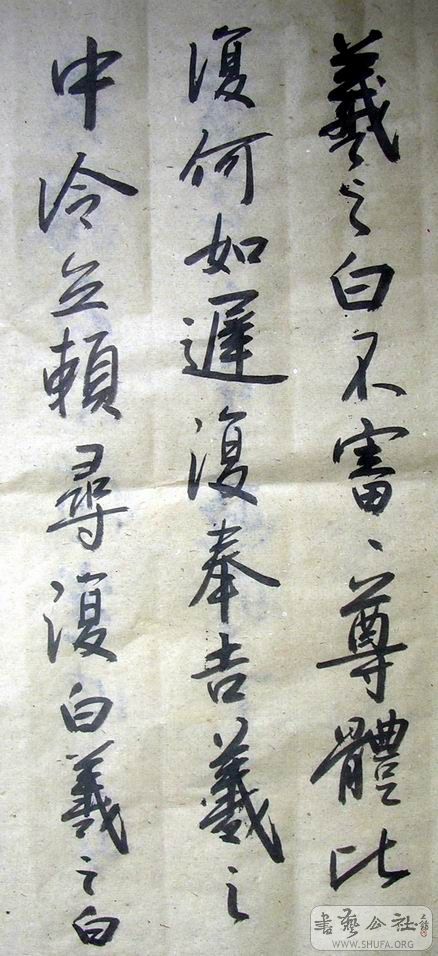 羲之白不審、尊體比
復何如遲復奉告羲之
中冷无賴尋復白羲之白
書藝公社
WWW.SHUFA.ORG